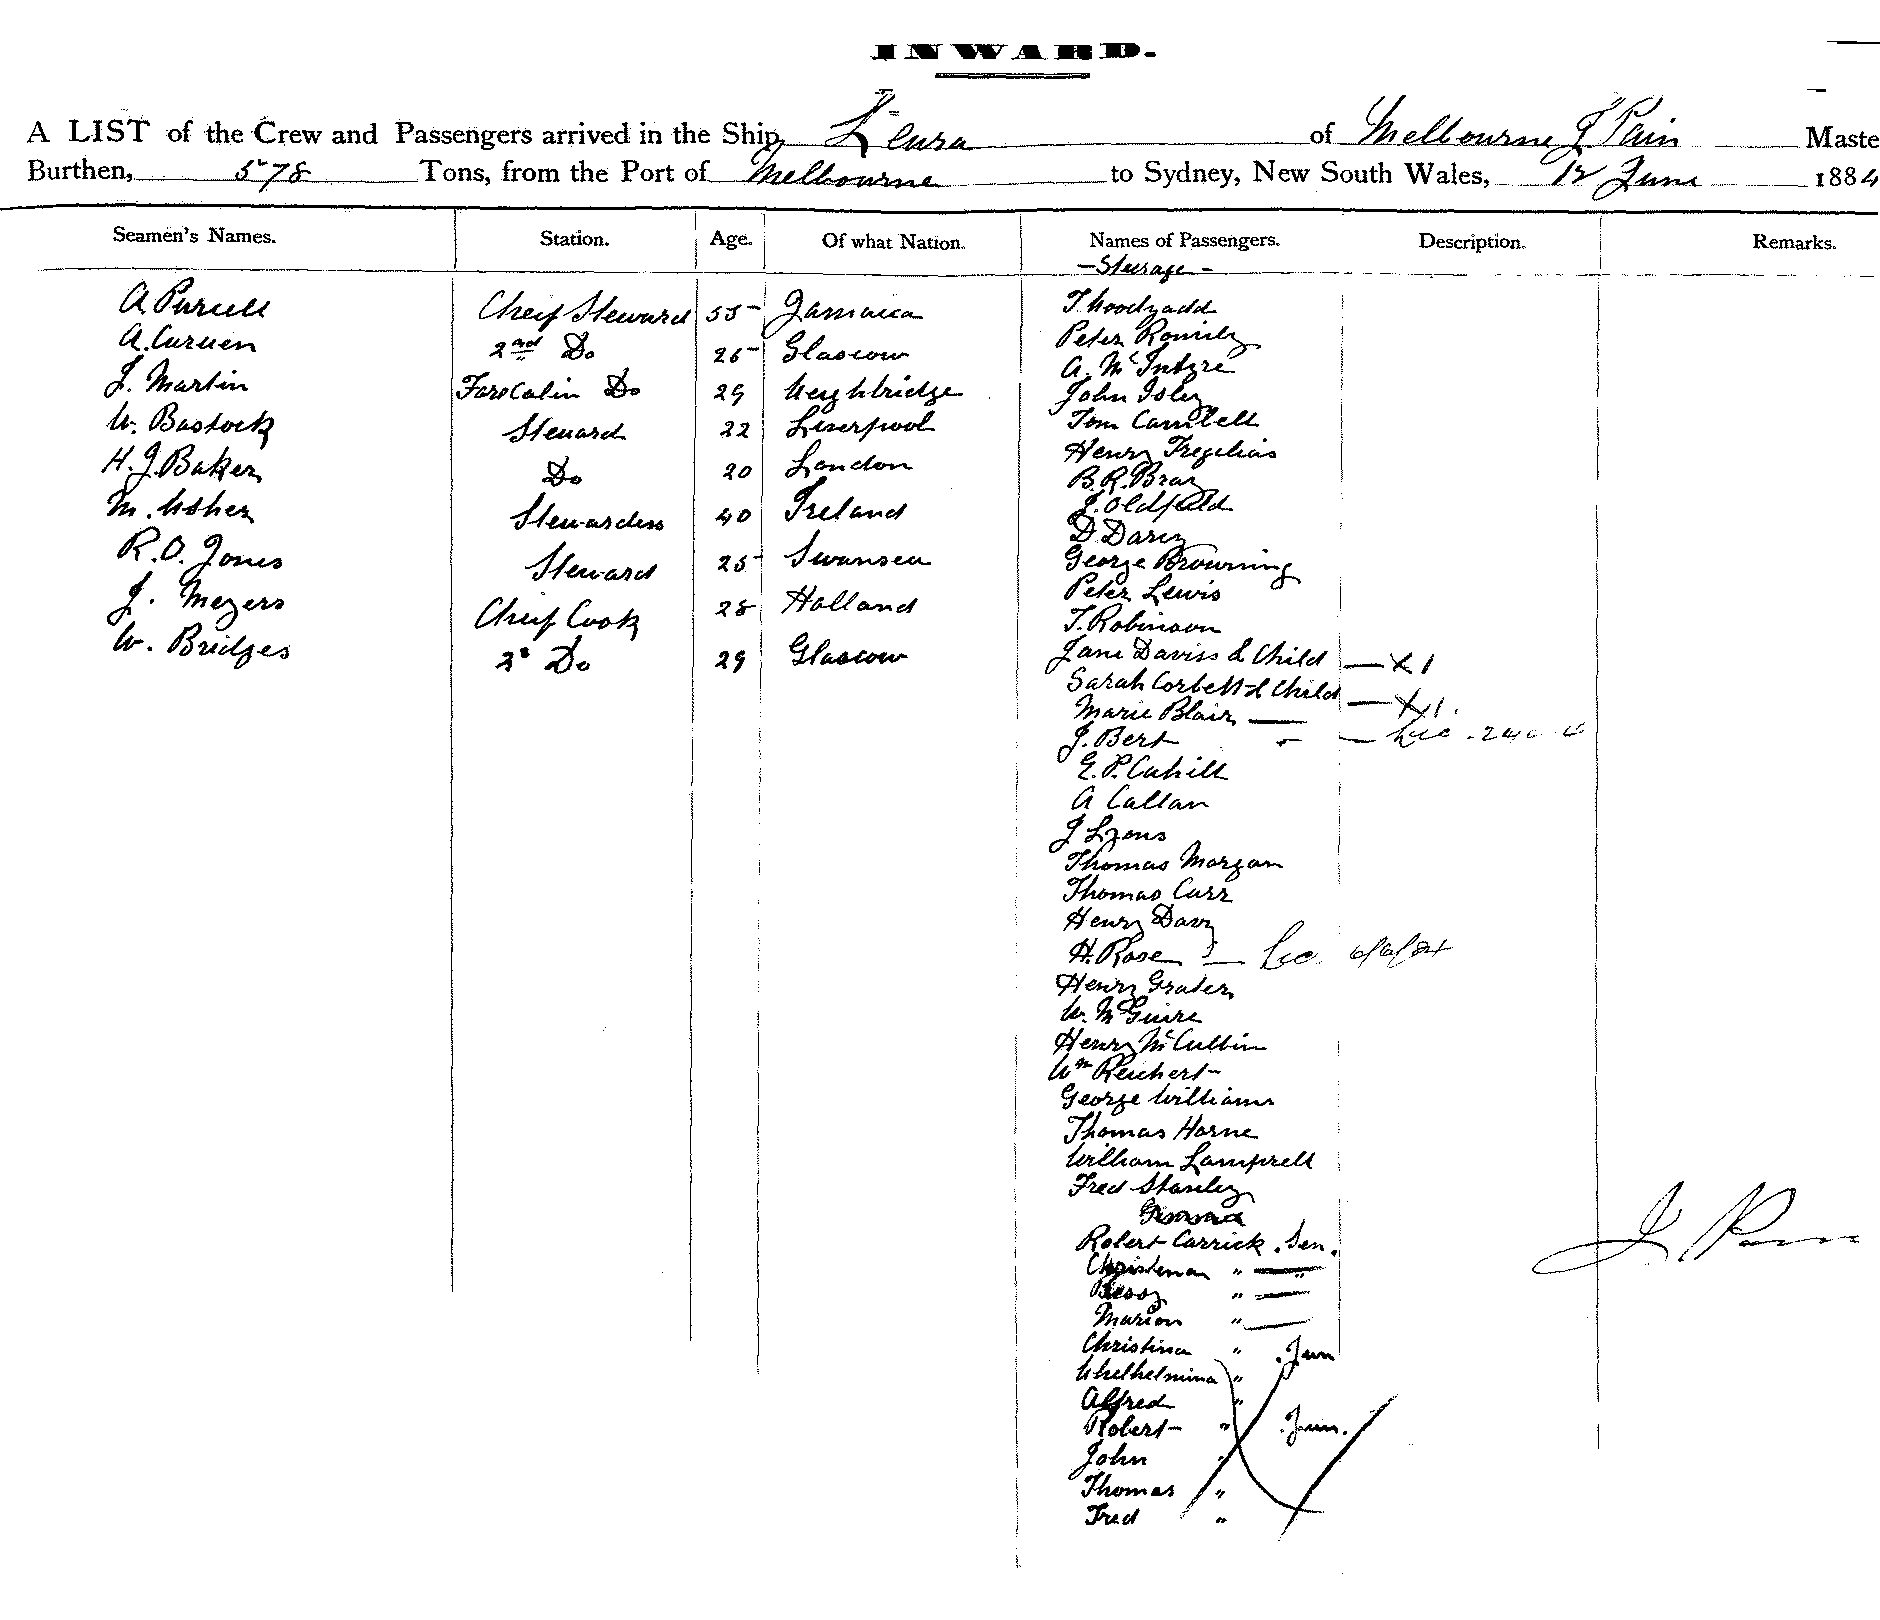 INWARD.
A LIST of the Crew and Passengers arrived in the Ship, Leura of Melbourne J Pain Maste
Burthen, 578 Tons, from the Port of Melbourne to Sydney, New South Wales, 12 June 1884
Seamen's Names. Station. Age. Of what Nation. Names of Passengers. Description. Remarks.
- Steerage -
A Purcell Cheif Steward 55 Jamaica
A. Curuen 2nd Do 25 Glascow
J. Martin Fore Cabin Do 29 Weighbridge
W. Bastock Steward 22 Liverpool
H. J. Baker Do 20 London
M. Usher Stewardess 40 Ireland
R. O. Jones Steward 25 Swansea
J. Meyers Cheif Cook 28 Holland
W. Bridges 2d Do 29 Glascow
T. Woodyadd
Peter Romily
A. McIntyre
John Isley
Tom Cambell
Henry Tregelias
B. R. Bray
J. Oldfield
D Darcy
George Browning
Peter Lewis
T. Robinson
Jane Daviss & Child — X 1
Sarah Corbett & Child — X 1.
Marie Blair —
J. Bert
E. P. Cahill
A Callan
J Lyons
Thomas Morgan
Thomas Carr
Henry Davy
H. Rose
Henry Grater
W. McGuire
Henry McCubbin
Wm Reichert
George Williams
Thomas Horne
William Lamprell
Fred Stanley
Robert Carrick . Sen.
Christena " — "
Bessy " —
Marion " —
Christina " . Jun
Whelhelmina "
Alfred "
Robert " . Jun.
John "
Thomas "
Fred "
J Pain